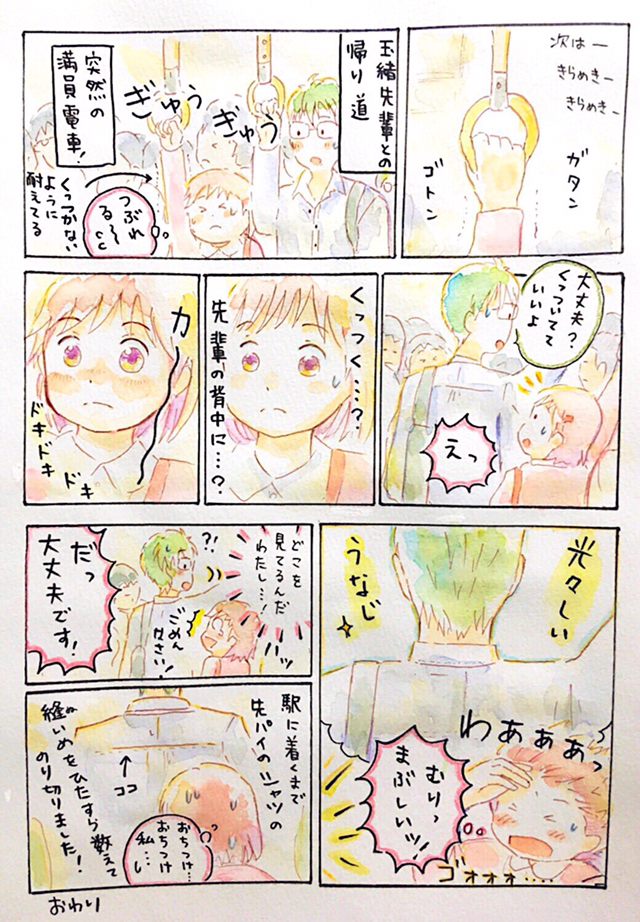 次はー
きらめきー
きらめきー
ガタン
ゴトン
玉緒先輩との
帰り道
ぎゅう
ぎゅう
突然の
満員電車!
つぶれ
る〜
くっつかない
ように
耐えてる
大丈夫?
くっついてて
いいよ
えっ
くっつく…?
先輩の背中に…?
カ
ドキ
ドキ
ドキ
光々しい
うなじ
わあぁぁっ
むりっ
まぶしいッ!
ゴォォォ....
どこを
見てるんだ
わたし…!
?!
バッ
ごめん
なさい!
だっ
大丈夫です!
駅に着くまで
先パイのシャツの
縫いめをひたすら数えて
のり切りました!
ココ
おちつけ…
おちつけ
私…し
おわり